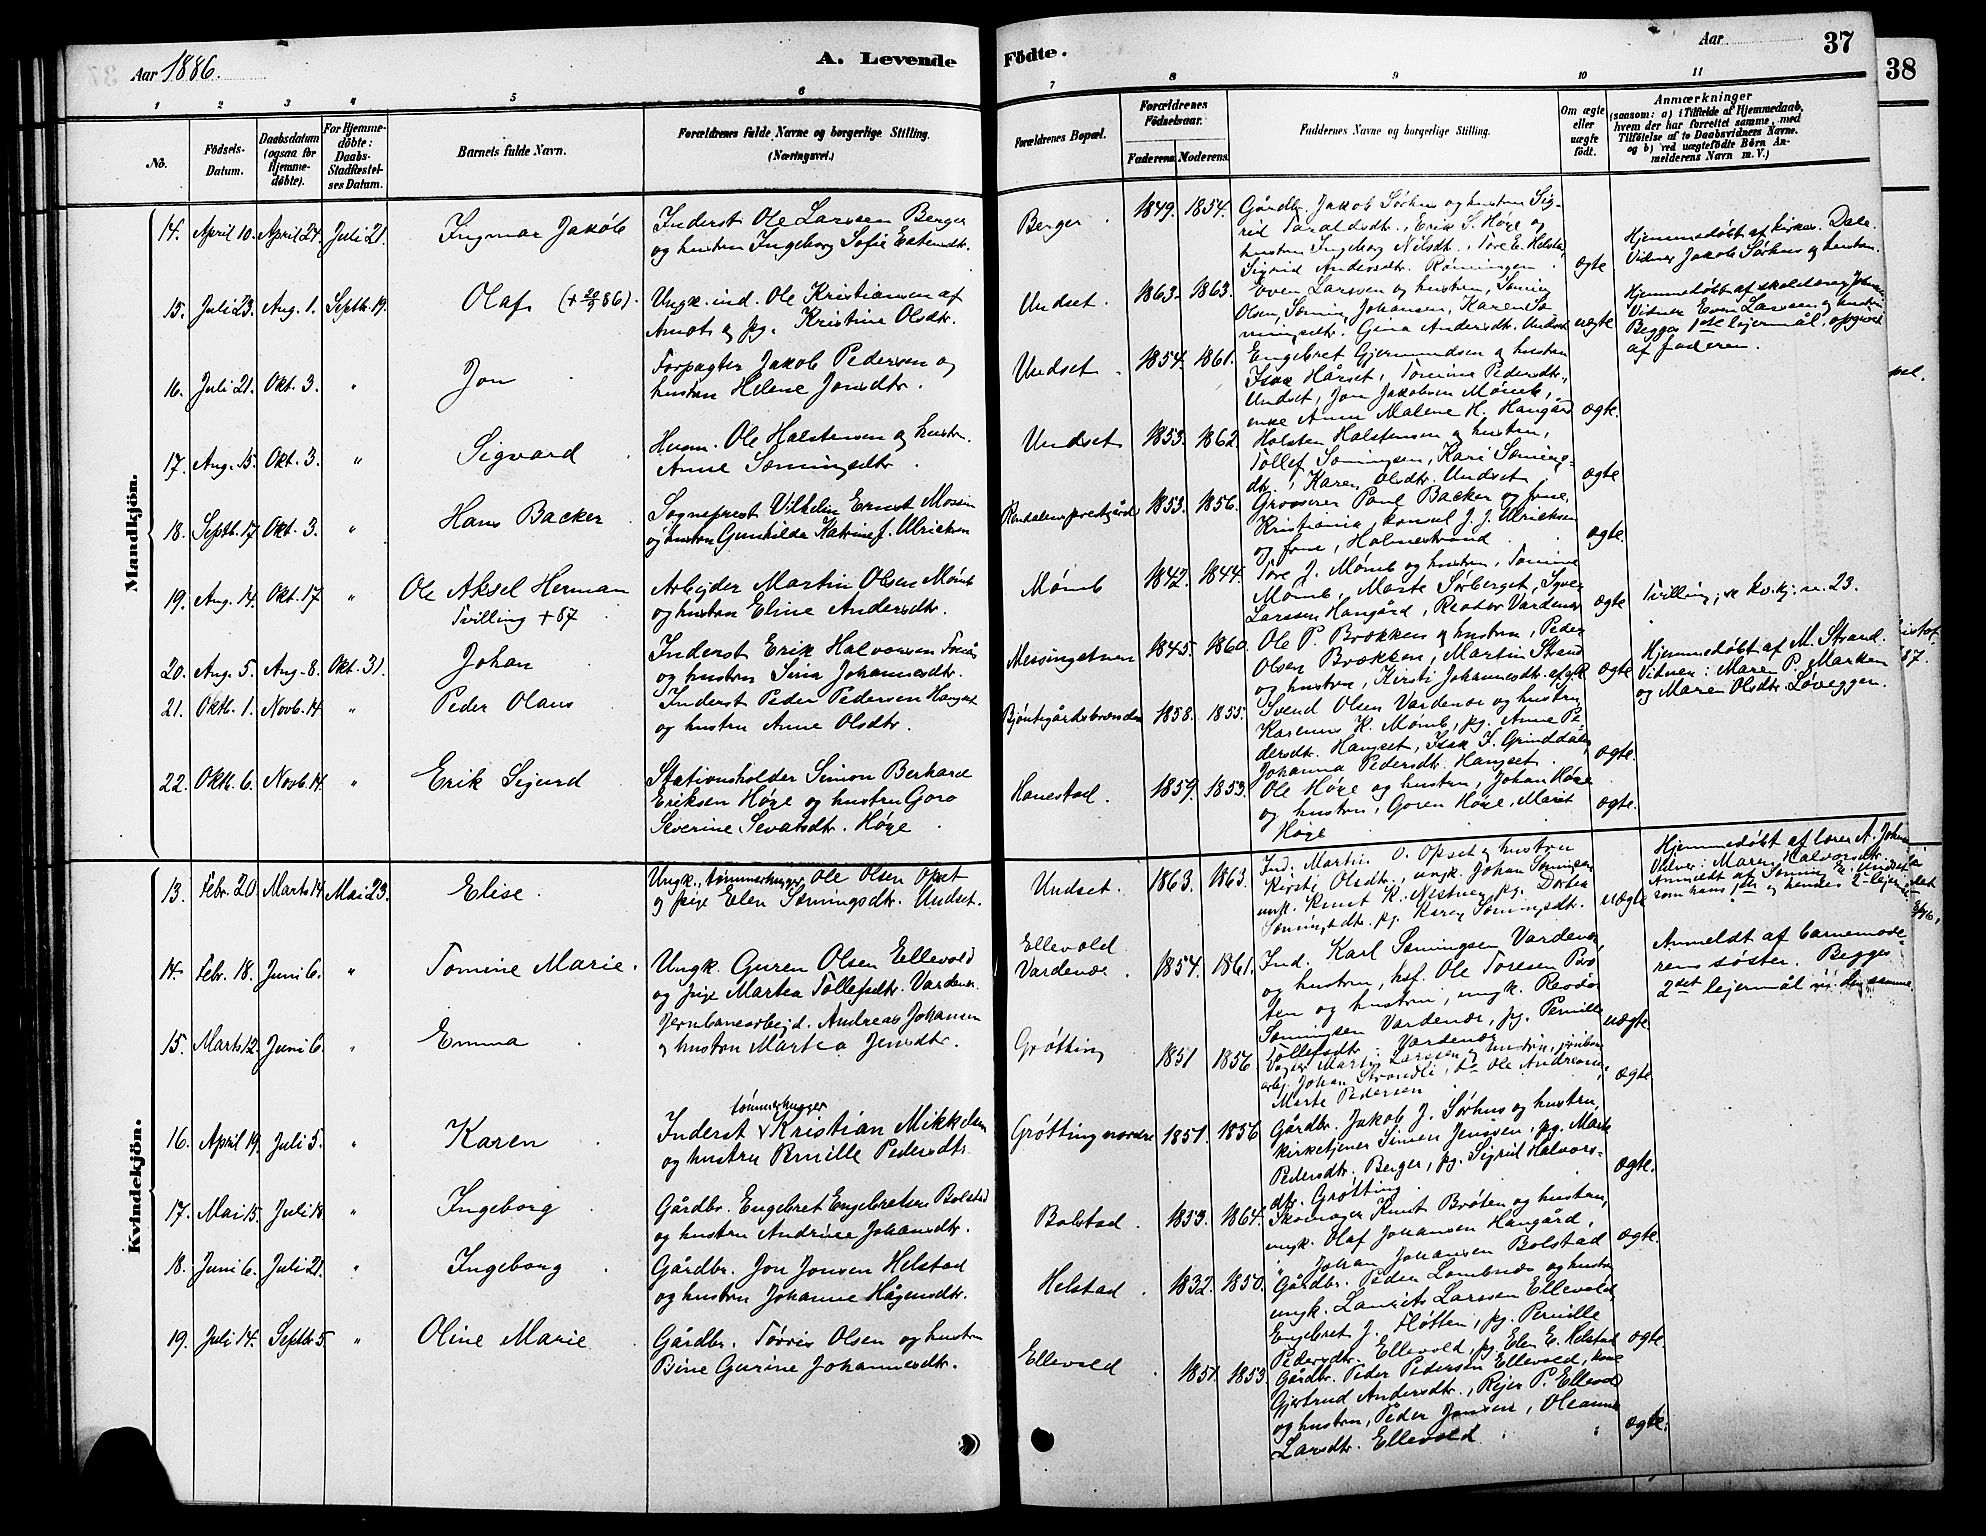 Aar 1886.
A. Levende
Födte.
Aar
37
38
1 2 3 4 5 6 7 8 9 10 11
No.
Födsels-
Datum.
Daabsdatum
(ogsaa for
Hjemme-
døbte).
For Hjemme-
döbte:
Daabs-
Stadfæstel-
ses Datum.
Barnets fulde Navn.
Forældrenes fulde Navne og borgerlige Stilling.
(Næringsvei.)
Forældrenes Bopæl.
Forældrenes
Födselsaar.
Faderens. Moderens.
Faddernes Navne og borgerlige Stilling.
Om ægte
eller
uægte
født.
Anmærkninger
(saasom: a) i Tilfælde af Hjemmedaab,
hvem der har forrettet samme, med
Tilföielse af to Daabsvidners Navne.
og b) ved uægtefödte Börn An-
melderens Navn m. V.)
Mandkjön.
14. April 10. April 24. Juli 21. Ingmar Jakob
Inderst Ole Larssen Berger
og hustru Ingeborg Sofie Estensdtr.
Berger 1849. 1854.
Gårdbr. Jakob Sørhus og hustru Sig-
rid Taraldsdtr., Erik S. Høge og
hustru Ingeborg Nilsdtr., Tore E. Helstad,
Sigrid Andersdtr. Rønningen.
ægte
Hjemmedøbt af kirkes. Dale.
Vidner Jakob Sørhus og hustru.
15. Juli 23. Aug. 1. Septb. 19. Olaf (+ 20/9 86).
Ungk. ind. Ole Kristiansen af
Amot og pg. Kristine Olsdtr.
Undset. 1863. 1863.
Even Larssen og hustru, Søming
Olsen, Søming Johansen, Karen Sø-
mingsdtr. Gina Andersdtr. Undset
uægte
Hjemmedøbt af skolelærer Johns.
Vidner Even Larssen og hustru
Begges 1ste lejermål, opgivet
af faderen.
16. Juli 21. Okt. 3. " Jon
Forpagter Jakob Pedersen og
hustru Helene Jonsdtr.
Undset 1854. 1861.
Engebret Gjermundsen og hustru
Isak Hårset, Tomine Pedersdtr.
Undset, Jon Jakobsen Mømb,
enke Anne Malene H. Hangård
ægte.
17. Aug. 15. Okt. 3. " Sigvard
Husm. Ole Halstensen og hustru
Anne Sømingsdtr.
Undset 1853. 1862.
Halsten Halstensen og hustru,
Tollef Sømingsen, Kari Søming-
dtr., Karen Olsdtr. Undset
ægte
18. Septb. 17 Okt. 3. " Hans Backer
Sogneprest Vilhelm Ernst Mossin
og hustru Gunhilda Katrine f. Ulricksen
Rendalens prestgård 1853. 1856.
Grosserer Paul Backer og frue,
Kristiania, konsul J. J. Ulricksen
og frue, Holmestrand
ægte.
19. Aug. 14. Okt. 17 " Ole Aksel Herman
Tvilling + 87
Arbejder Martin Olsen Mømb
og hustru Eline Andersdtr.
Mømb 1842. 1844.
Tore J. Mømb og hustru, Tomine
Mømb, Marte Sørberget, Syver
Larssen Hangård, Reodor Vardenær
ægte
Tvilling, se kv.kj. n. 23.
20. Aug. 5. Aug. 8. Okt. 31. Johan
Inderst Erik Halvorsen
og hustru Sina Johannesdtr.
Messingetuen 1845. 1860.
Ole P. Brokken og hustru, Peder
Olsen Brækken, Martin Strand
og hustru, Kirsti Johannesdtr.
ægte
Hjemmedøbt af M. Strand.
Vidner: Maren P. Marken
og Maren Olsdtr. Løveggen.
21. Oktb. 1. Novb. 14. " Peder Olaus
Inderst Peder Pedersen Hangset
og hustru Anne Olsdtr.
Bjøntegårdsbrænden 1858. 1855.
Svend Olsen Vardenær og hustru
Karenus K. Mømb, pg. Anne Pe-
dersdtr. Hangset, Isak I. Grinddalen
Johanna Pedersdtr. Hangset.
ægte.
22. Oktb. 6. Novb. 14. " Erik Sigurd
Stationsholder Simon Berhard
Eriksen Høge og hustru Goro
Severine Sevatsdtr. Høge
Hanestad. 1859. 1853.
Ole Høge og hustru, Johan Høge
og hustru, Goren Høge, Marit
Høge
ægte.
Kvindekjön.
13. Febr. 20. Marts 14. Mai 23. Elise.
Ungk., tømmerhugger Ole Olsen Opset
og pige Elen Sømingsdtr. Undset.
Undset. 1863. 1863.
Ind. Martin O. Opset og hustru
Kirsti Olsdtr., ungk. Johan Sømingsen,
ungk. Knut K. Nestuen, pg. Dortea
Sømingsdtr., pg. Karen Sømingsdtr.
uægte
Hjemmedøbt af lærer A. Johns.
Vidner: Maren Halvorsdtr.
Anmeldt af Søming E. Undset
som hans 1ste og hendes 2. lejermål
14. Febr. 18. Juni 6. " Tomine Marie.
Ungk. Guren Olsen Ellevold
og pige Martea Tollefsdtr. Vardenær
Ellevold
Vardenær. 1854. 1861.
Ind. Karl Sømingsen Vardenær,
og hustru, hsf. Ole Toresen Brø-
ten og hustru, ungk. Reodor
Sømingsen Vardenær, pg. Pernille
Tollefsdtr. Vardenær
uægte
Anmeldt af barnemode-
rens søster. Begges
2det lejermål
15. Marts 12. Juni 6. " Emma
Jernbanearbejd. Andreas Johansen
og hustru Martea Jensdtr.
Grøtting 1851 1856
Vogter Martin Larssen og hustru, jernban-
arbj. Johan Strandli, do Ole Andreassen,
Marte Pedersen
ægte
16. April 19. Juli 5. " Karen
tømmerhugger
Inderst Kristian Mikkelsen
og hustru Pernille Pedersdtr.
Grøtting nordre 1851. 1856
Gårdbr. Jakob J. Sørhus og hustru,
kirketjener Simen Jenssen, pg. Marte
Pedersdtr. Berger, pg. Sigrid Halvors-
dtr. Grøtting.
ægte.
17. Mai 15. Juli 18. " Ingeborg
Gårdbr. Engebret Engebretsen Bolstad
og hustru Andrine Johansdtr.
Bolstad. 1853. 1864.
Skomager Knut Brøten og hustru,
ungk. Olaf Johansen Hangård,
" Johan Johansen Bolstad
ægte.
18. Juni 6. Juli 21. " Ingeborg
Gårdbr. Jon Jonsen Helstad
og hustru Johanne Hågensdtr.
Helstad 1832. 1850.
Gårdbr. Peder Lombnæs og hustru
ungk. Laurits Larssen Ellevold,
Engebret J. Fløtten, pg. Pernille
Pedersdtr. Ellevold, pg. Elen E. Helstad
ægte
19. Juli 14. Septb. 5. " Oline Marie
Gårdbr. Torris Olsen og hustru
Bine Gurine Johannesdtr.
Ellevold 1851. 1853.
Gårdbr. Peder Pedersen Ellevold, kone
Gjertrud Andersdtr., Rejer P. Ellevold
og hustru, Peder Jensen, Oleanna
Larsdtr. Ellevold
ægte.